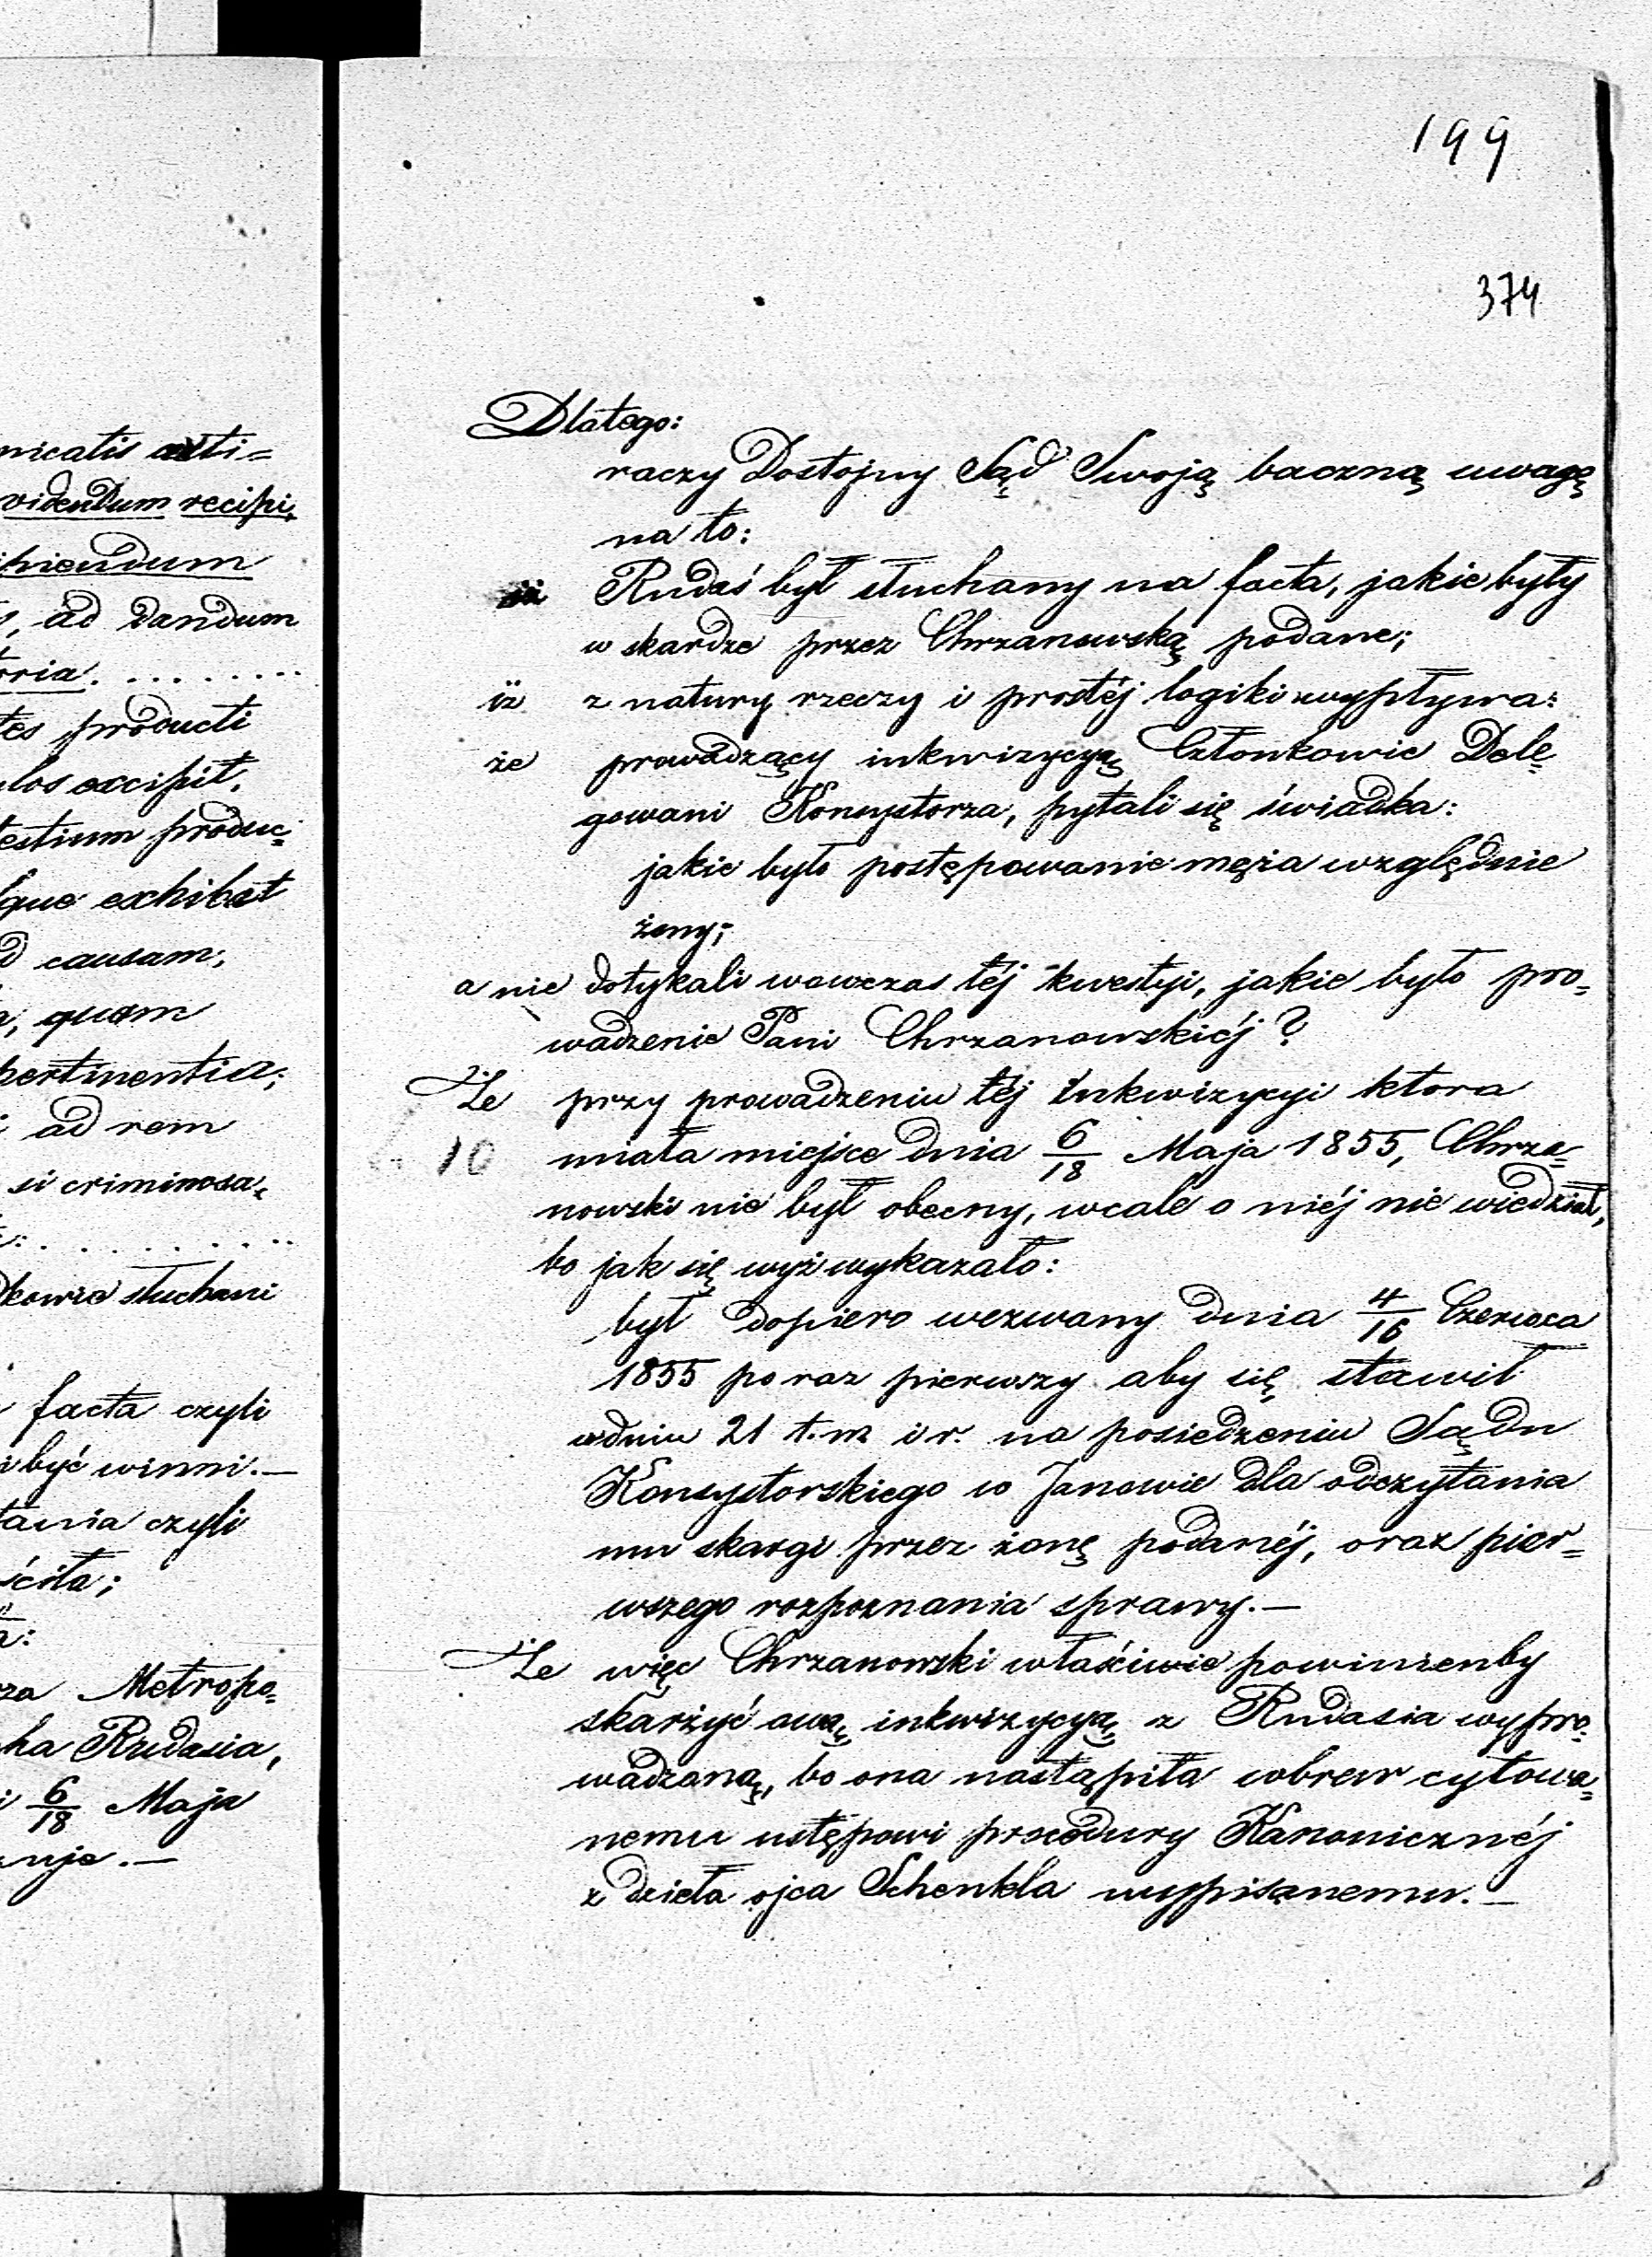 nicatis acti=
videndum recipi=
piendum
s, ad dandum
oria. . . . . . . . .
tes producti
los excipit.
testium produc=
que exhibet
d causam,
a, quam
pertinentia;
i ad rem
si criminosa=
. . . . . . . . . .
dkowie słuchani
facta czyli
i być winni.—
tania czyli
ściła;
a:
za Metropo=
ka Rudasia,
i 6/18 Maja
nuje.—
199
374
Dlatego:
raczy Dostojny Sąd Swoją baczną uwagę
na to:
iż Rudaś był słuchany na facta, jakie były
w skardze przez Chrzanowską podane;
iż z natury rzeczy i prostéj logiki wypływa:
że prowadzący inkwizycyą Członkowie Dele=
gowani Konsystorza, pytali się świadka:
jakie było postępowanie męża względnie
żony;
a nie dotykali wowczas téj kwestyi, jakie było pro=
wadzenie Pani Chrzanowskiéj?
Że przy prowadzeniu téj inkwizycyi ktora
10 miała miejsce dnia 6/18 Maja 1855, Chrza=
nowski nie był obecny, wcale o niéj nie wiedział,
bo jak się wyż wykazało:
był dopiero wezwany dnia 4/16 Czerwca
1855 po raz pierwszy aby się stawił
w dniu 21 t. m. i r. na posiedzeniu Sądu
Konsystorskiego w Janowie dla odczytania
mu skargi przez żonę podanéj, oraz pier=
wszego rozpoznania sprawy.—
Że więc Chrzanowski właściwie powinienby
skarżyć ową inkwizycyą z Rudasia wypro=
wadzoną, bo ona nastąpiła wbrew cytowa=
nemu ustępowi procedury Kanonicznéj
z dzieła ojca Schenkla wypisanemu.—